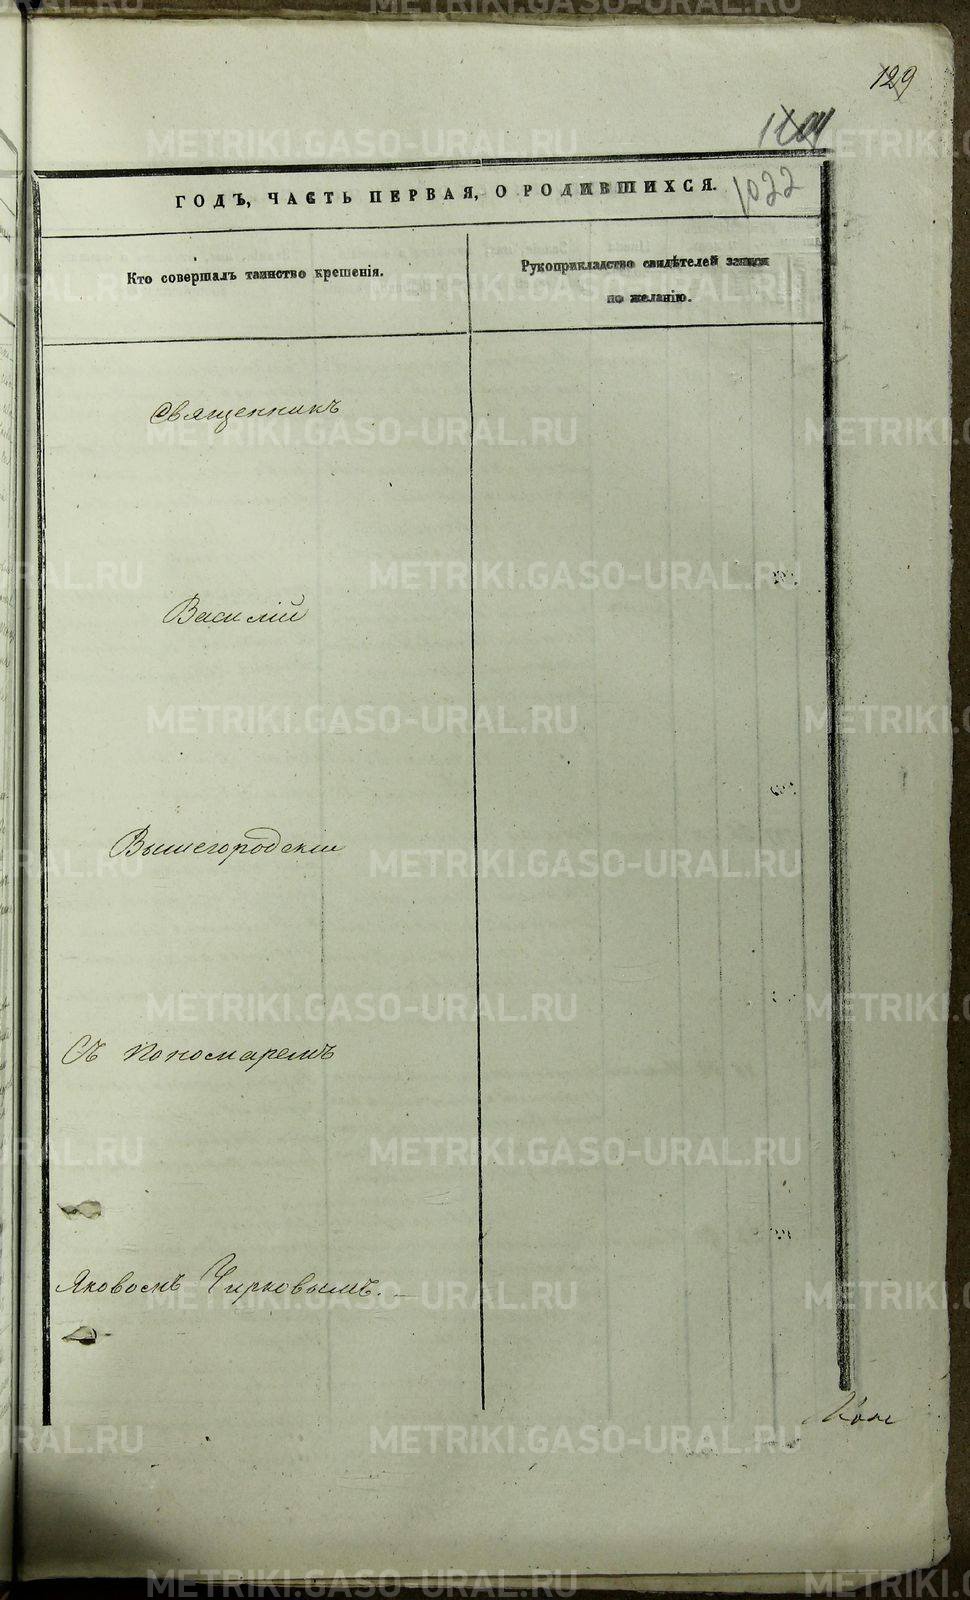 129
1101
ГОДЪ, ЧАСТЬ ПЕРВАЯ, О РОДИВШИХСЯ.
1022
Кто совершалъ таинство крещенія.
Рукоприкладство свидѣтелей записи
по желанію.
Священникъ
Василій
Вышегородскій
Съ пономаремъ
Яковомъ Чирковымъ.
METRIKI.GASO-URAL.RU